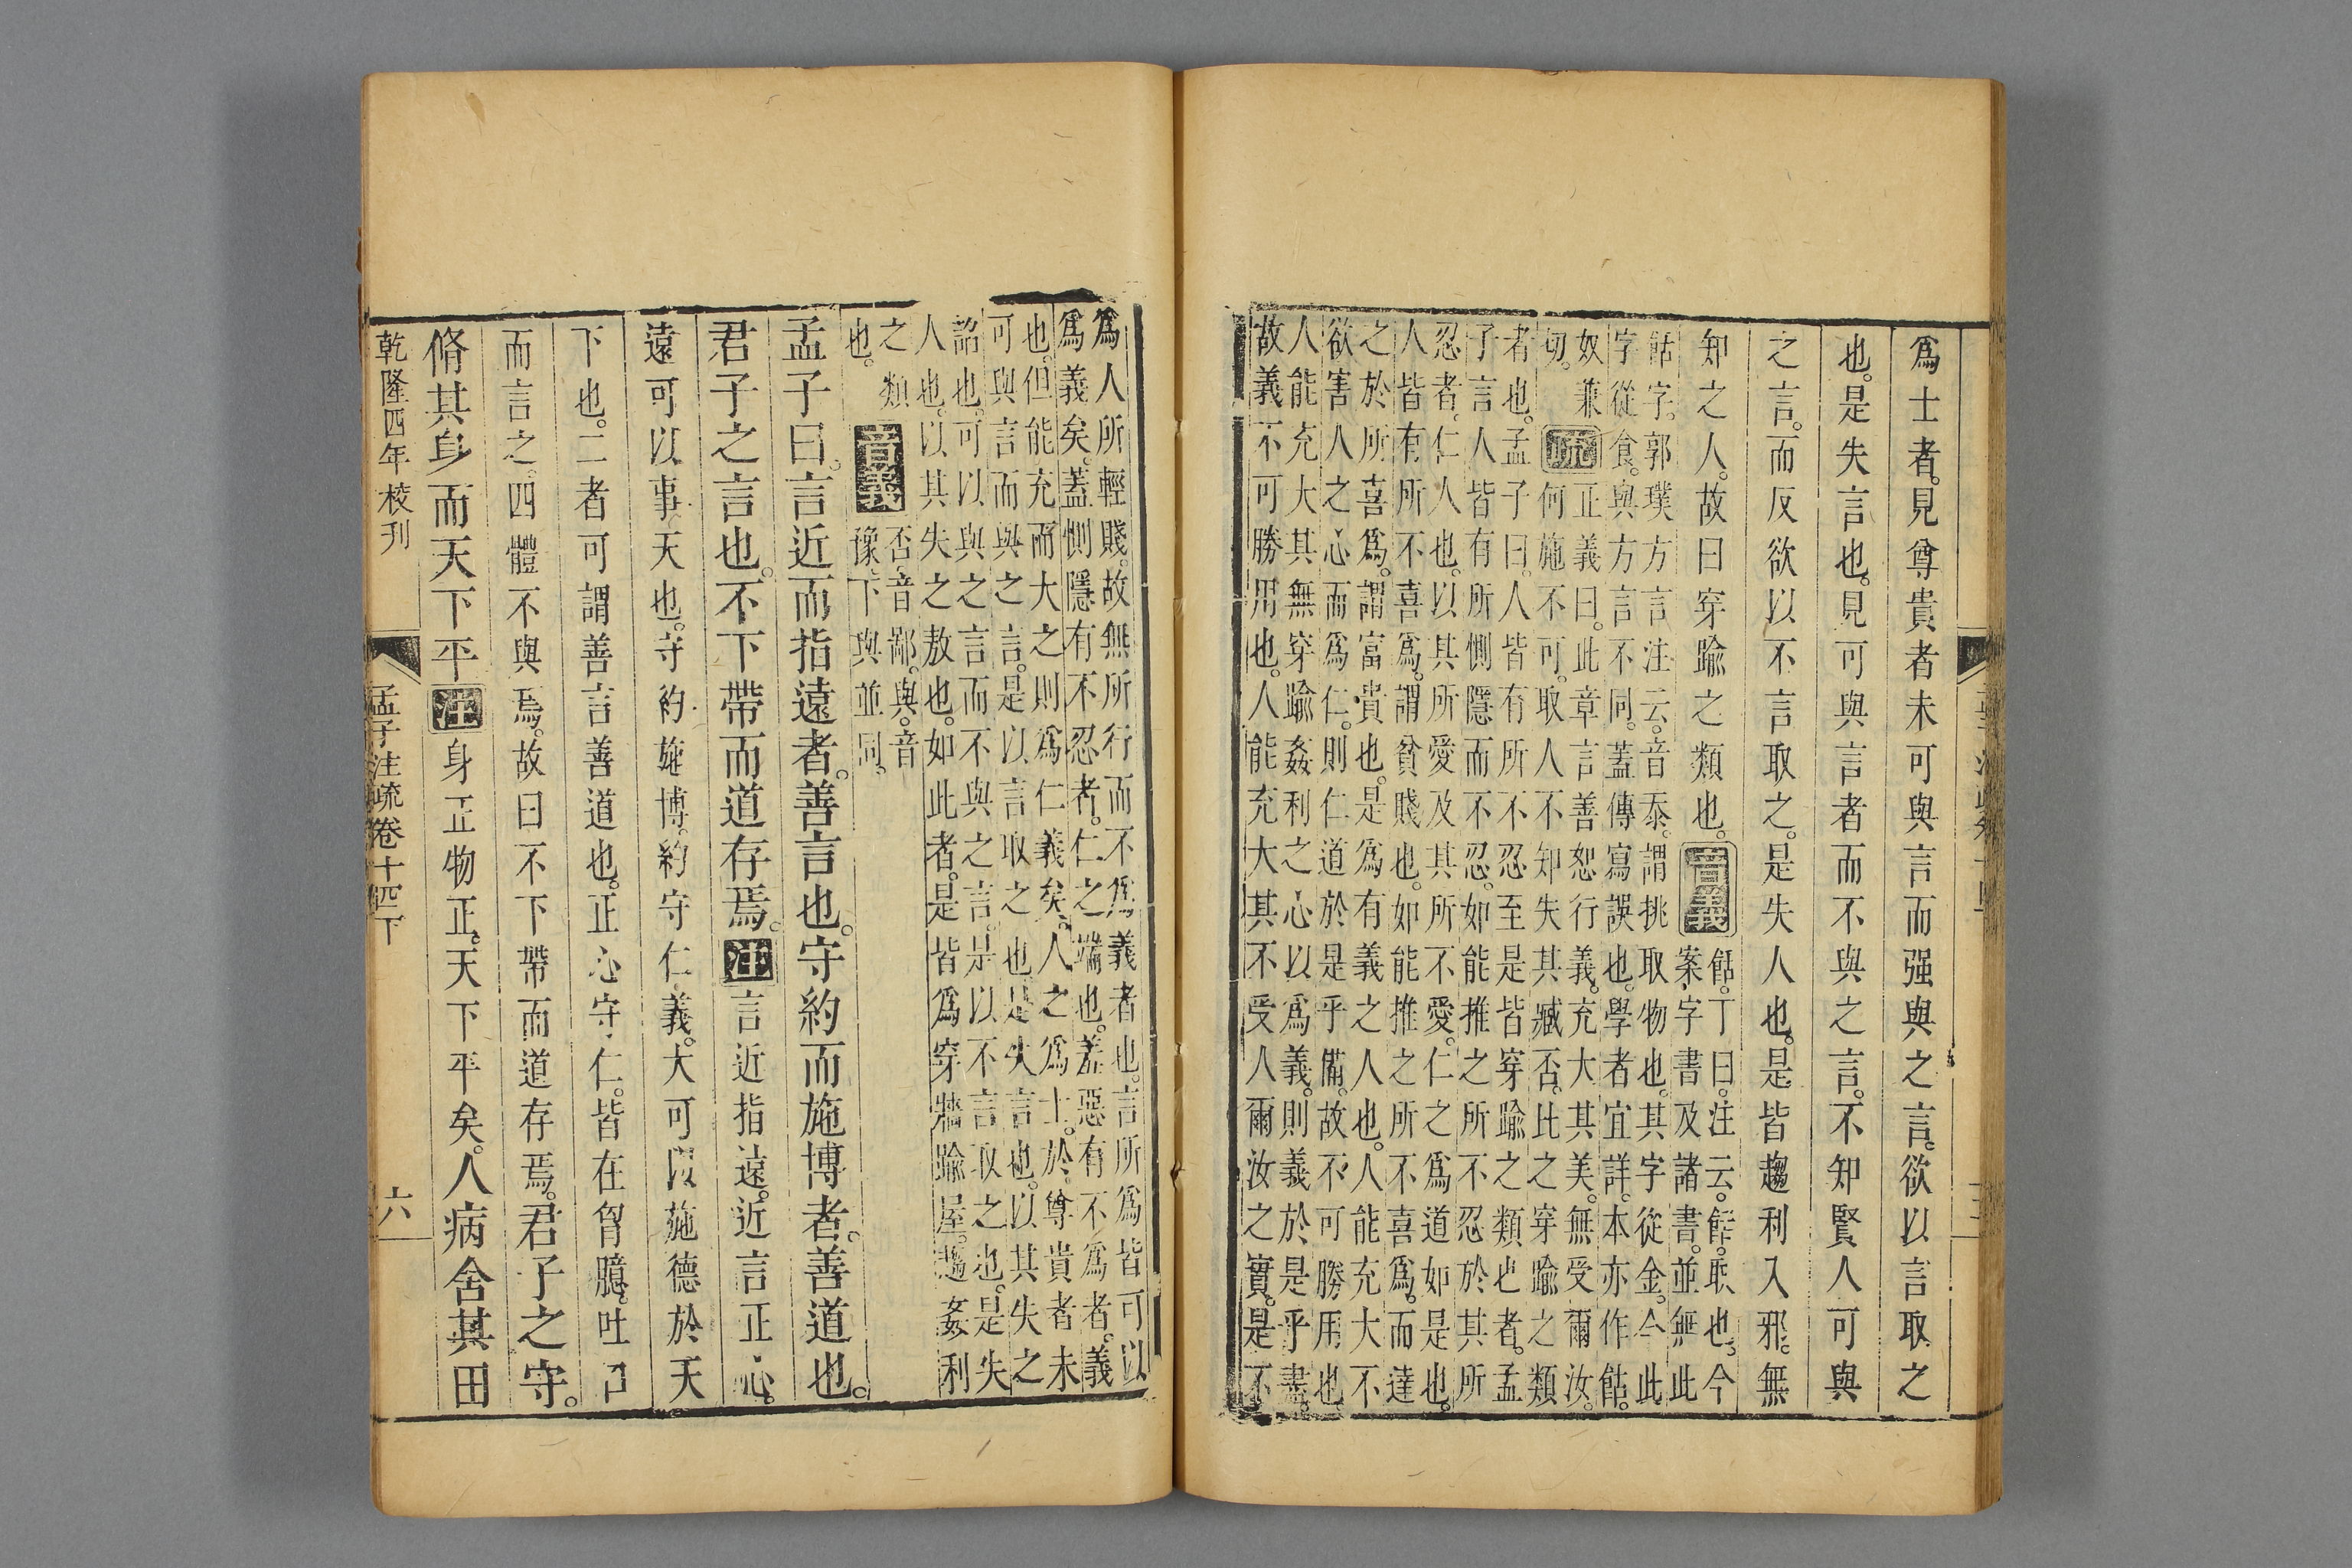 爲士者。見尊貴者未可與言而强與之言。欲以言取之
也。是失言也。見可與言者而不與之言。不知賢人可與
之言。而反欲以不言取之。是失人也。是皆趨利入邪。無
知之人。故曰穿踰之類也。音義餂。丁曰。注云。餂。取也。今
案字書及諸書。並無此
餂字。郭璞方言注云。音忝。謂挑取物也。其字從金。今此
字從食。與方言不同。蓋傳寫誤也。學者宜詳。本亦作餂。
奴兼
切。疏正義曰。此章言善恕行義。充大其美。無受爾汝。
何施不可。取人不知失其臧否。比之穿踰之類
者也。孟子曰。人皆有所不忍至是皆穿踰之類也者。孟
子言人皆有所惻隱而不忍。如能推之所不忍於其所
忍者。仁人也。以其所愛及其所不愛。仁之爲道如是也。
人皆有所不喜爲。謂貧賤也。如能推之所不喜爲。而達
之於所喜爲。謂富貴也。是爲有義之人也。人能充大不
欲害人之心而爲仁。則仁道於是乎備。故不可勝用也
人能充大其無穿踰姦利之心以爲義。則義於是乎盡。
故義不可勝用也。人能充大其不受人爾汝之實。是不
爲人所輕賤。故無所行而不爲義者也。言所爲皆可以
爲義矣。蓋惻隱有不忍者。仁之端也。羞惡有不爲者。義
也。但能充而大之則爲仁義矣。人之爲士。於尊貴者未
可與言而與之言。是以言取之也。是失言也。以其失之
諂也。可以與之言而不與之言。是以不言取之也。是失
人也。以其失之敖也。如此者。是皆爲穿牆踰屋。趨姦利
之類
也。音義否。音鄙。與。音
豫。下與並同。
孟子曰。言近而指遠者。善言也。守約而施博者。善道也。
君子之言也。不下帶而道存焉。注言近指遠。近言正心。
遠可以事天也。守約施博。約守仁義。大可以施德於天
下也。二者可謂善言善道也。正心守仁。皆在胷臆。吐口
而言之。四體不與焉。故曰不下帶而道存焉。君子之守。
脩其身而天下平注身正物正。天下平矣。人病舍其田
乾隆四年校刊
孟子注疏卷十四下
六